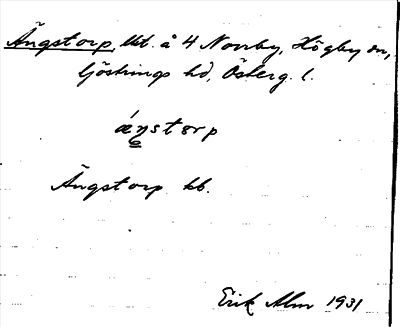 Ängstorp, lht. å 4 Norrby, Högby sn,
Göstrings hd, Österg. l.
ä́ŋstorp
Ängstorp kb.
Erik Alm 1931